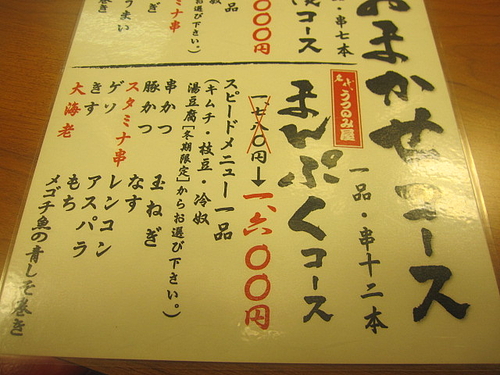 おまかせコース
一品・串七本
コース
000円
一品
お選び下さい。)
スタミナ串
うまい
巻き
名代 うつのみ屋
まんぷくコース
一品・串十二本
一七八〇円→一六〇〇円
スピードメニュー一品
(キムチ・枝豆・冷奴
湯豆腐[冬期限定]からお選び下さい。)
串かつ 玉ねぎ
豚かつ なす
スタミナ串 レンコン
ゲソ アスパラ
きす もち
大海老 メゴチ魚の青しそ巻き